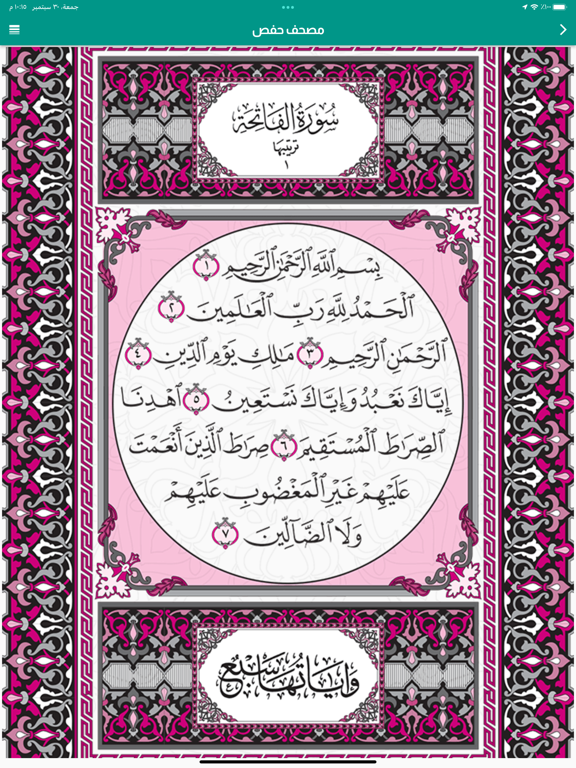 جمعة، ٣٠ سبتمبر ١٠:١٥ م
٪١٠٠
مصحف حفص
سُورَةُ الْفَاتِحَةِ
ترتيبها
١
بِسْمِ ٱللَّهِ ٱلرَّحْمَٰنِ ٱلرَّحِيمِ ١
ٱلْحَمْدُ لِلَّهِ رَبِّ ٱلْعَٰلَمِينَ ٢
ٱلرَّحْمَٰنِ ٱلرَّحِيمِ ٣ مَٰلِكِ يَوْمِ ٱلدِّينِ ٤
إِيَّاكَ نَعْبُدُ وَإِيَّاكَ نَسْتَعِينُ ٥ ٱهْدِنَا
ٱلصِّرَٰطَ ٱلْمُسْتَقِيمَ ٦ صِرَٰطَ ٱلَّذِينَ أَنْعَمْتَ
عَلَيْهِمْ غَيْرِ ٱلْمَغْضُوبِ عَلَيْهِمْ
وَلَا ٱلضَّآلِّينَ ٧
وآياتها سبع